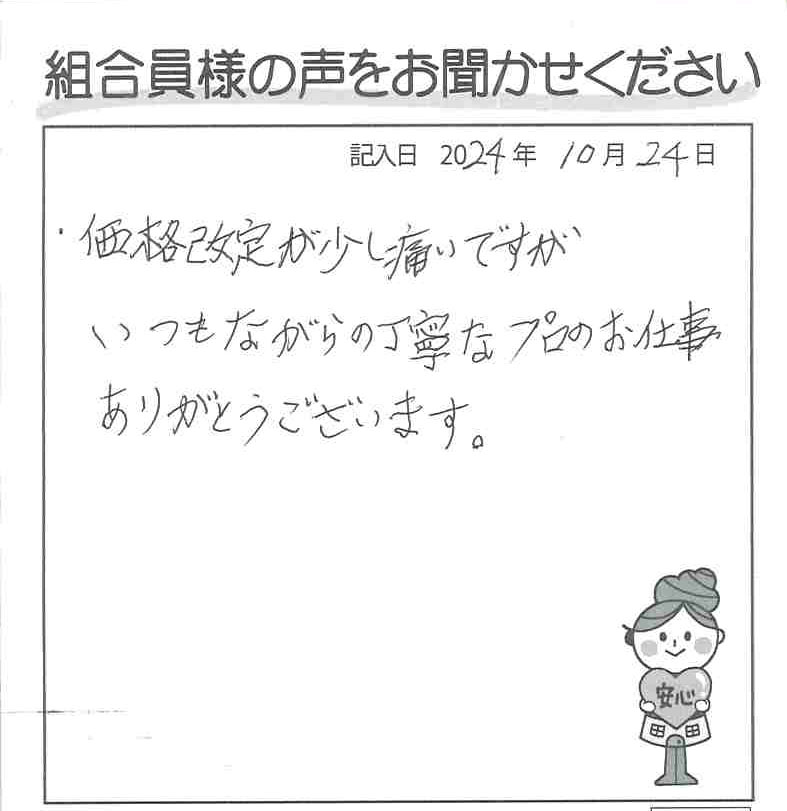 組合員様の声をお聞かせください
記入日 2024年 10月 24日
・価格改定が少し痛いですが
いつもながらの丁寧なプロのお仕事
ありがとうございます。
安心